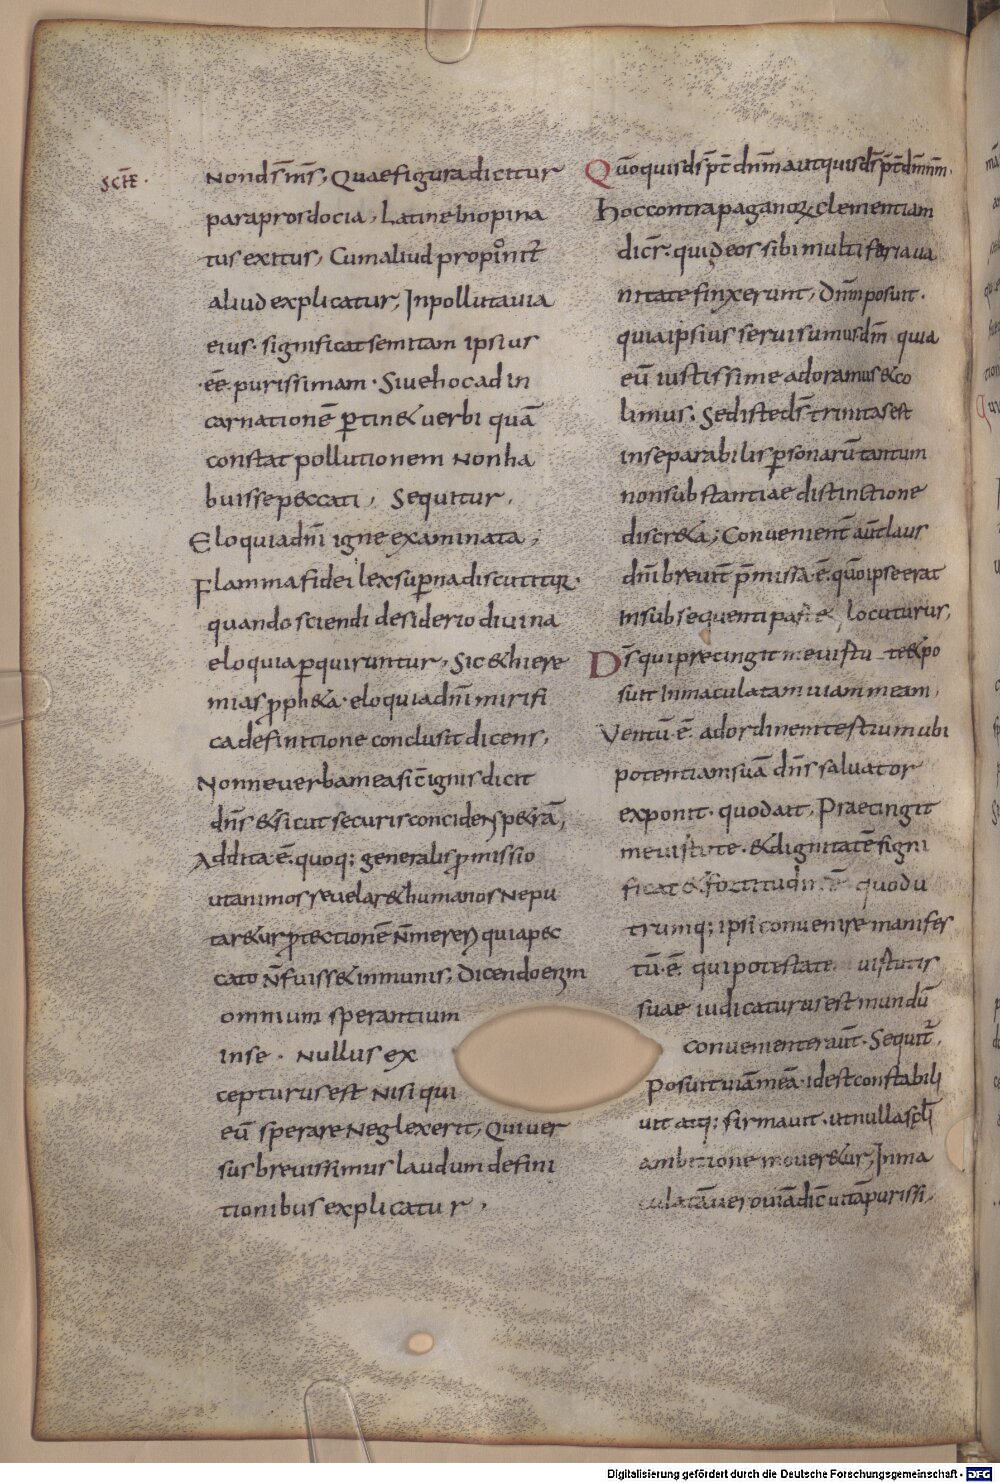 scħe ·
Non ds̄ ms̄; Quae figura dicitur
paraprosdocia, Latine Inopina
tus exitus, Cum aliud proponit̄
aliud explicatur, Inpolluta uia
eius · significat semitam ipsius
ēē purissimam · Siue hoc ad in
carnationē ꝑtin& uerbi quā
constat pollutionem Non ha
buisse peccati, Sequitur,
Eloquia dn̄i igne examinata;
Flamma fidei lex suꝑna discutitur ·
quando sciendi desiderio diuina
eloquia ꝑquiruntur, Sic & hiere
mias ꝓph&a · eloquia dn̄i mirifi
ca definitione conclusit dicens,
Nonne uerba mea sic̄ ignis dicit
dn̄s & sicut securis concidens p&rā,
Addita ē quoq; generalis ꝓmissio
ut animos reuelar& humanos Ne pu
tar&ur ꝓtectionē
cato n̄ fuiss& inmunis, Dicendo enim
omnium sperantium
in se · Nullus ex
cepturus est Nisi qui
eū sperare Neglexerit, Qui uer
sus breuissimus laudum defini
tionibus explicatur,
Quō quis ds̄ p̄t dnm̄ aut quis ds̄ p̄t dm̄ nm̄ ·
Hoc contra paganoꝝ clementiam
dicr̄ · qui deos sibi multifaria ua
nitate finxerunt, Dnm̄ posuit ·
quia ipsius serui sumus dm̄ quia
eū iustissime adoramus & co
limus; Sed iste ds̄ trinitas est
inseparabilis ꝑsonarū tantum
non substantiae distinctione
discr&a; Convenient̄ aūt laus
dn̄i breuit̄ p̄missa ē · quō ipse erat
In subsequenti parte locuturus,
Ds̄ qui precingit me uirtute & po
suit Inmaculatam uiam meam,
Ventū ē · ad ordinem tertium ubi
potentiam suā dn̄s saluator
exponit · quod ait, Praecingit
me uirtute · & dignitatē signi
ficat & fortitudin ē quod u
trumq; ipsi conuenire manifes
tū ē · qui potestate uirtutis
suae iudicaturus est mundū
conuenienter aūt · Sequit̄,
Posuit uiā meā · id est constabili
uit atq; firmauit · ut nulla scl̄i
ambitione mouer&ur, Inma
culatā uero uiā dic̄ uitā purissi ·
Digitalisierung gefördert durch die Deutsche Forschungsgemeinschaft - DFG